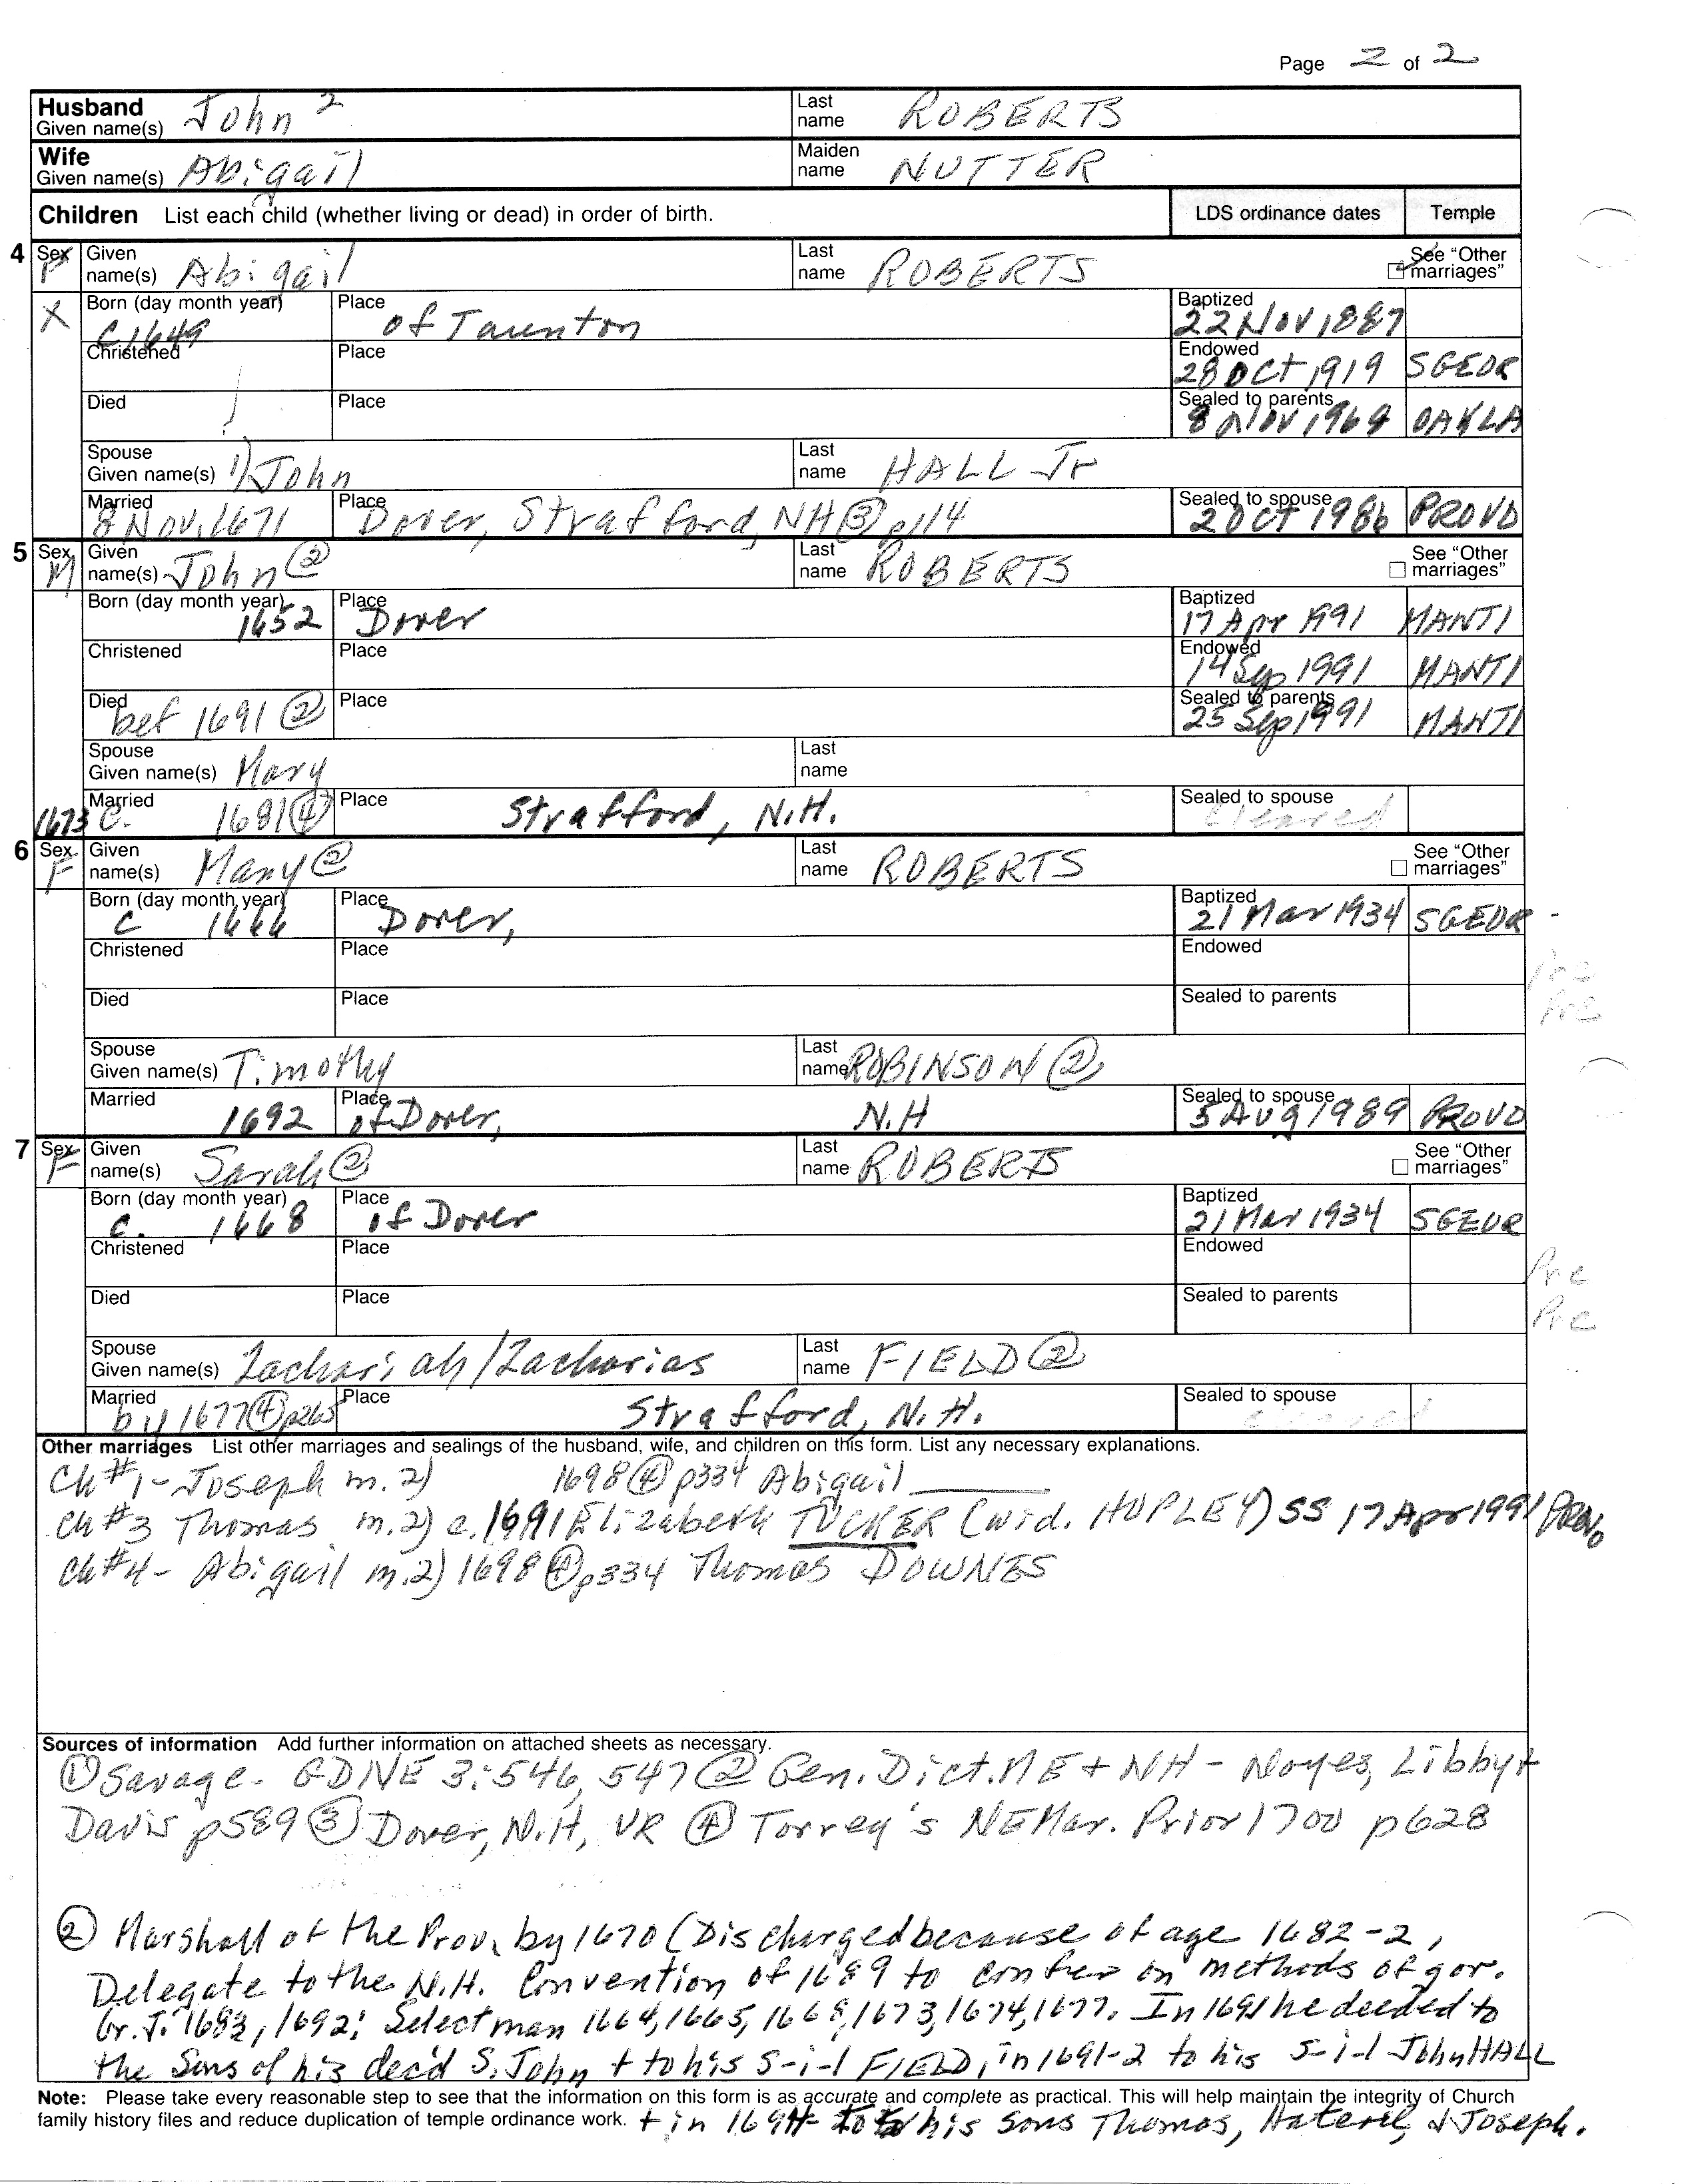 Page 2 of 2
Husband Given name(s) John 2 Last name ROBERTS
Wife Given name(s) Abigail Maiden name NUTTER
Children List each child (whether living or dead) in order of birth. LDS ordinance dates Temple
4 Sex F Given name(s) Abigail Last name ROBERTS See "Other marriages"
X Born (day month year) C 1649 Place of Taunton Baptized 22 NOV 1887
Christened Place Endowed 28 OCT 1919 SGEOR
Died Place Sealed to parents 8 NOV 1969 OAKLA
Spouse Given name(s) 1) John Last name HALL Jr
Married 8 Nov. 1671 Place Dover, Strafford, NH ③ p114 Sealed to spouse 2 OCT 1986 PROVO
5 Sex M Given name(s) John ② Last name ROBERTS See "Other marriages"
Born (day month year) 1652 Place Dover Baptized 17 Apr 1991 MANTI
Christened Place Endowed 14 Sep 1991 MANTI
Died bef 1691 ② Place Sealed to parents 25 Sep 1991 MANTI
Spouse Given name(s) Mary Last name
1673 Married C. 1681 ④ Place Strafford, N.H. Sealed to spouse cleared
6 Sex F Given name(s) Mary ② Last name ROBERTS See "Other marriages"
Born (day month year) C 1666 Place Dover, Baptized 21 Mar 1934 SGEOR -
Christened Place Endowed Pre
Died Place Sealed to parents Pre
Spouse Given name(s) Timothy Last name ROBINSON ②
Married 1692 Place of Dover, N.H Sealed to spouse 5 AUG 1989 PROVO
7 Sex F Given name(s) Sarah ② Last name ROBERTS See "Other marriages"
Born (day month year) C. 1668 Place of Dover Baptized 21 Mar 1934 SGEOR
Christened Place Endowed Pre
Died Place Sealed to parents Pre
Spouse Given name(s) Zachariah/Zacharias Last name FIELD ②
Married by 1677 ④ p265 Place Strafford, N.H. Sealed to spouse
Other marriages List other marriages and sealings of the husband, wife, and children on this form. List any necessary explanations.
Ch #1 - Joseph m. 2) 1698 ④ p334 Abigail ______
Ch #3 Thomas m. 2) c. 1691 Elizabeth TUCKER (wid. HOPLEY) SS 17 Apr 1991 PROVO
Ch #4 - Abigail m. 2) 1698 ④ p334 Thomas DOWNES
Sources of information Add further information on attached sheets as necessary.
① Savage - GDNE 3:546, 547 ② Gen. Dict. ME + NH - Noyes, Libby +
Davis p589 ③ Dover, N.H, VR ④ Torrey's NE Mar. Prior 1700 p628
② Marshall of the Prov. by 1670 (Discharged because of age 1682-2,
Delegate to the N.H. Convention of 1689 to confer on methods of gov.
Gr. J. 1683, 1692; Selectman 1664, 1665, 1668, 1673, 1674, 1677. In 1691 he deeded to
the Sons of his dec'd S. John + to his s-i-l FIELD, in 1691-2 to his s-i-l John HALL
Note: Please take every reasonable step to see that the information on this form is as accurate and complete as practical. This will help maintain the integrity of Church
family history files and reduce duplication of temple ordinance work. + in 1694 to his sons Thomas, Hateril, & Joseph.